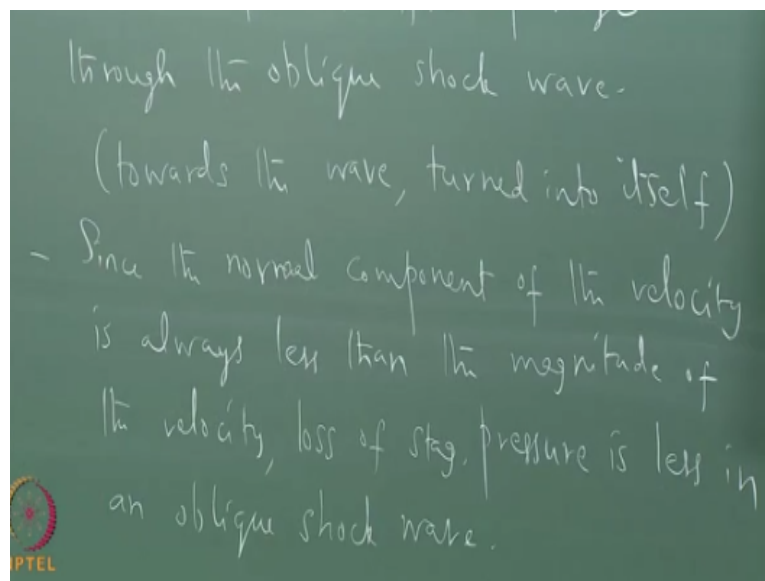 through the oblique shock wave.
(towards the wave, turned into itself)
- Since the normal component of the velocity
is always less than the magnitude of
the velocity, loss of stag. pressure is less in
an oblique shock wave.
IPTEL